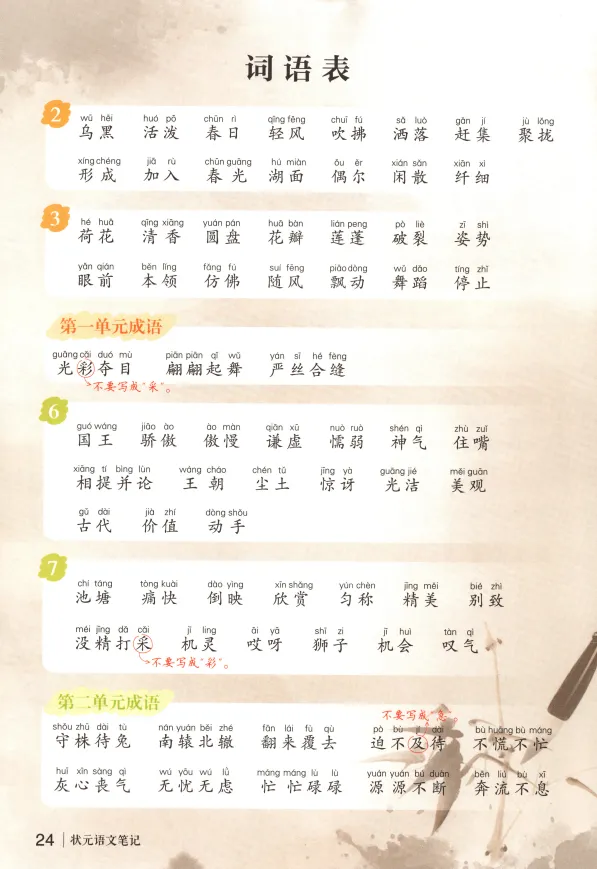 词语表
2
wū hēi huó pō chūn rì qīng fēng chuī fú sǎ luò gǎn jí jù lǒng
乌黑 活泼 春日 轻风 吹拂 洒落 赶集 聚拢
xíng chéng jiā rù chūn guāng hú miàn ǒu ěr xián sǎn xiān xì
形成 加入 春光 湖面 偶尔 闲散 纤细
3
hé huā qīng xiāng yuán pán huā bàn lián peng pò liè zī shì
荷花 清香 圆盘 花瓣 莲蓬 破裂 姿势
yǎn qián běn lǐng fǎng fú suí fēng piāo dòng wǔ dǎo tíng zhǐ
眼前 本领 仿佛 随风 飘动 舞蹈 停止
第一单元成语
guāng cǎi duó mù piān piān qǐ wǔ yán sī hé fèng
光彩夺目 翩翩起舞 严丝合缝
不要写成“采”。
6
guó wáng jiāo ào ào màn qiān xū nuò ruò shén qì zhù zuǐ
国王 骄傲 傲慢 谦虚 懦弱 神气 住嘴
xiāng tí bìng lùn wáng cháo chén tǔ jīng yà guāng jié měi guān
相提并论 王朝 尘土 惊讶 光洁 美观
gǔ dài jià zhí dòng shǒu
古代 价值 动手
7
chí táng tòng kuài dào yìng xīn shǎng yún chèn jīng měi bié zhì
池塘 痛快 倒映 欣赏 匀称 精美 别致
méi jīng dǎ cǎi jī ling āi yā shī zi jī huì tàn qì
没精打采 机灵 哎呀 狮子 机会 叹气
不要写成“彩”。
第二单元成语
不要写成“急”。
shǒu zhū dài tù nán yuán běi zhé fān lái fù qù pò bù jí dài bù huāng bù máng
守株待兔 南辕北辙 翻来覆去 迫不及待 不慌不忙
huī xīn sàng qì wú yōu wú lǜ máng máng lù lù yuán yuán bú duàn bēn liú bù xī
灰心丧气 无忧无虑 忙忙碌碌 源源不断 奔流不息
24 状元语文笔记